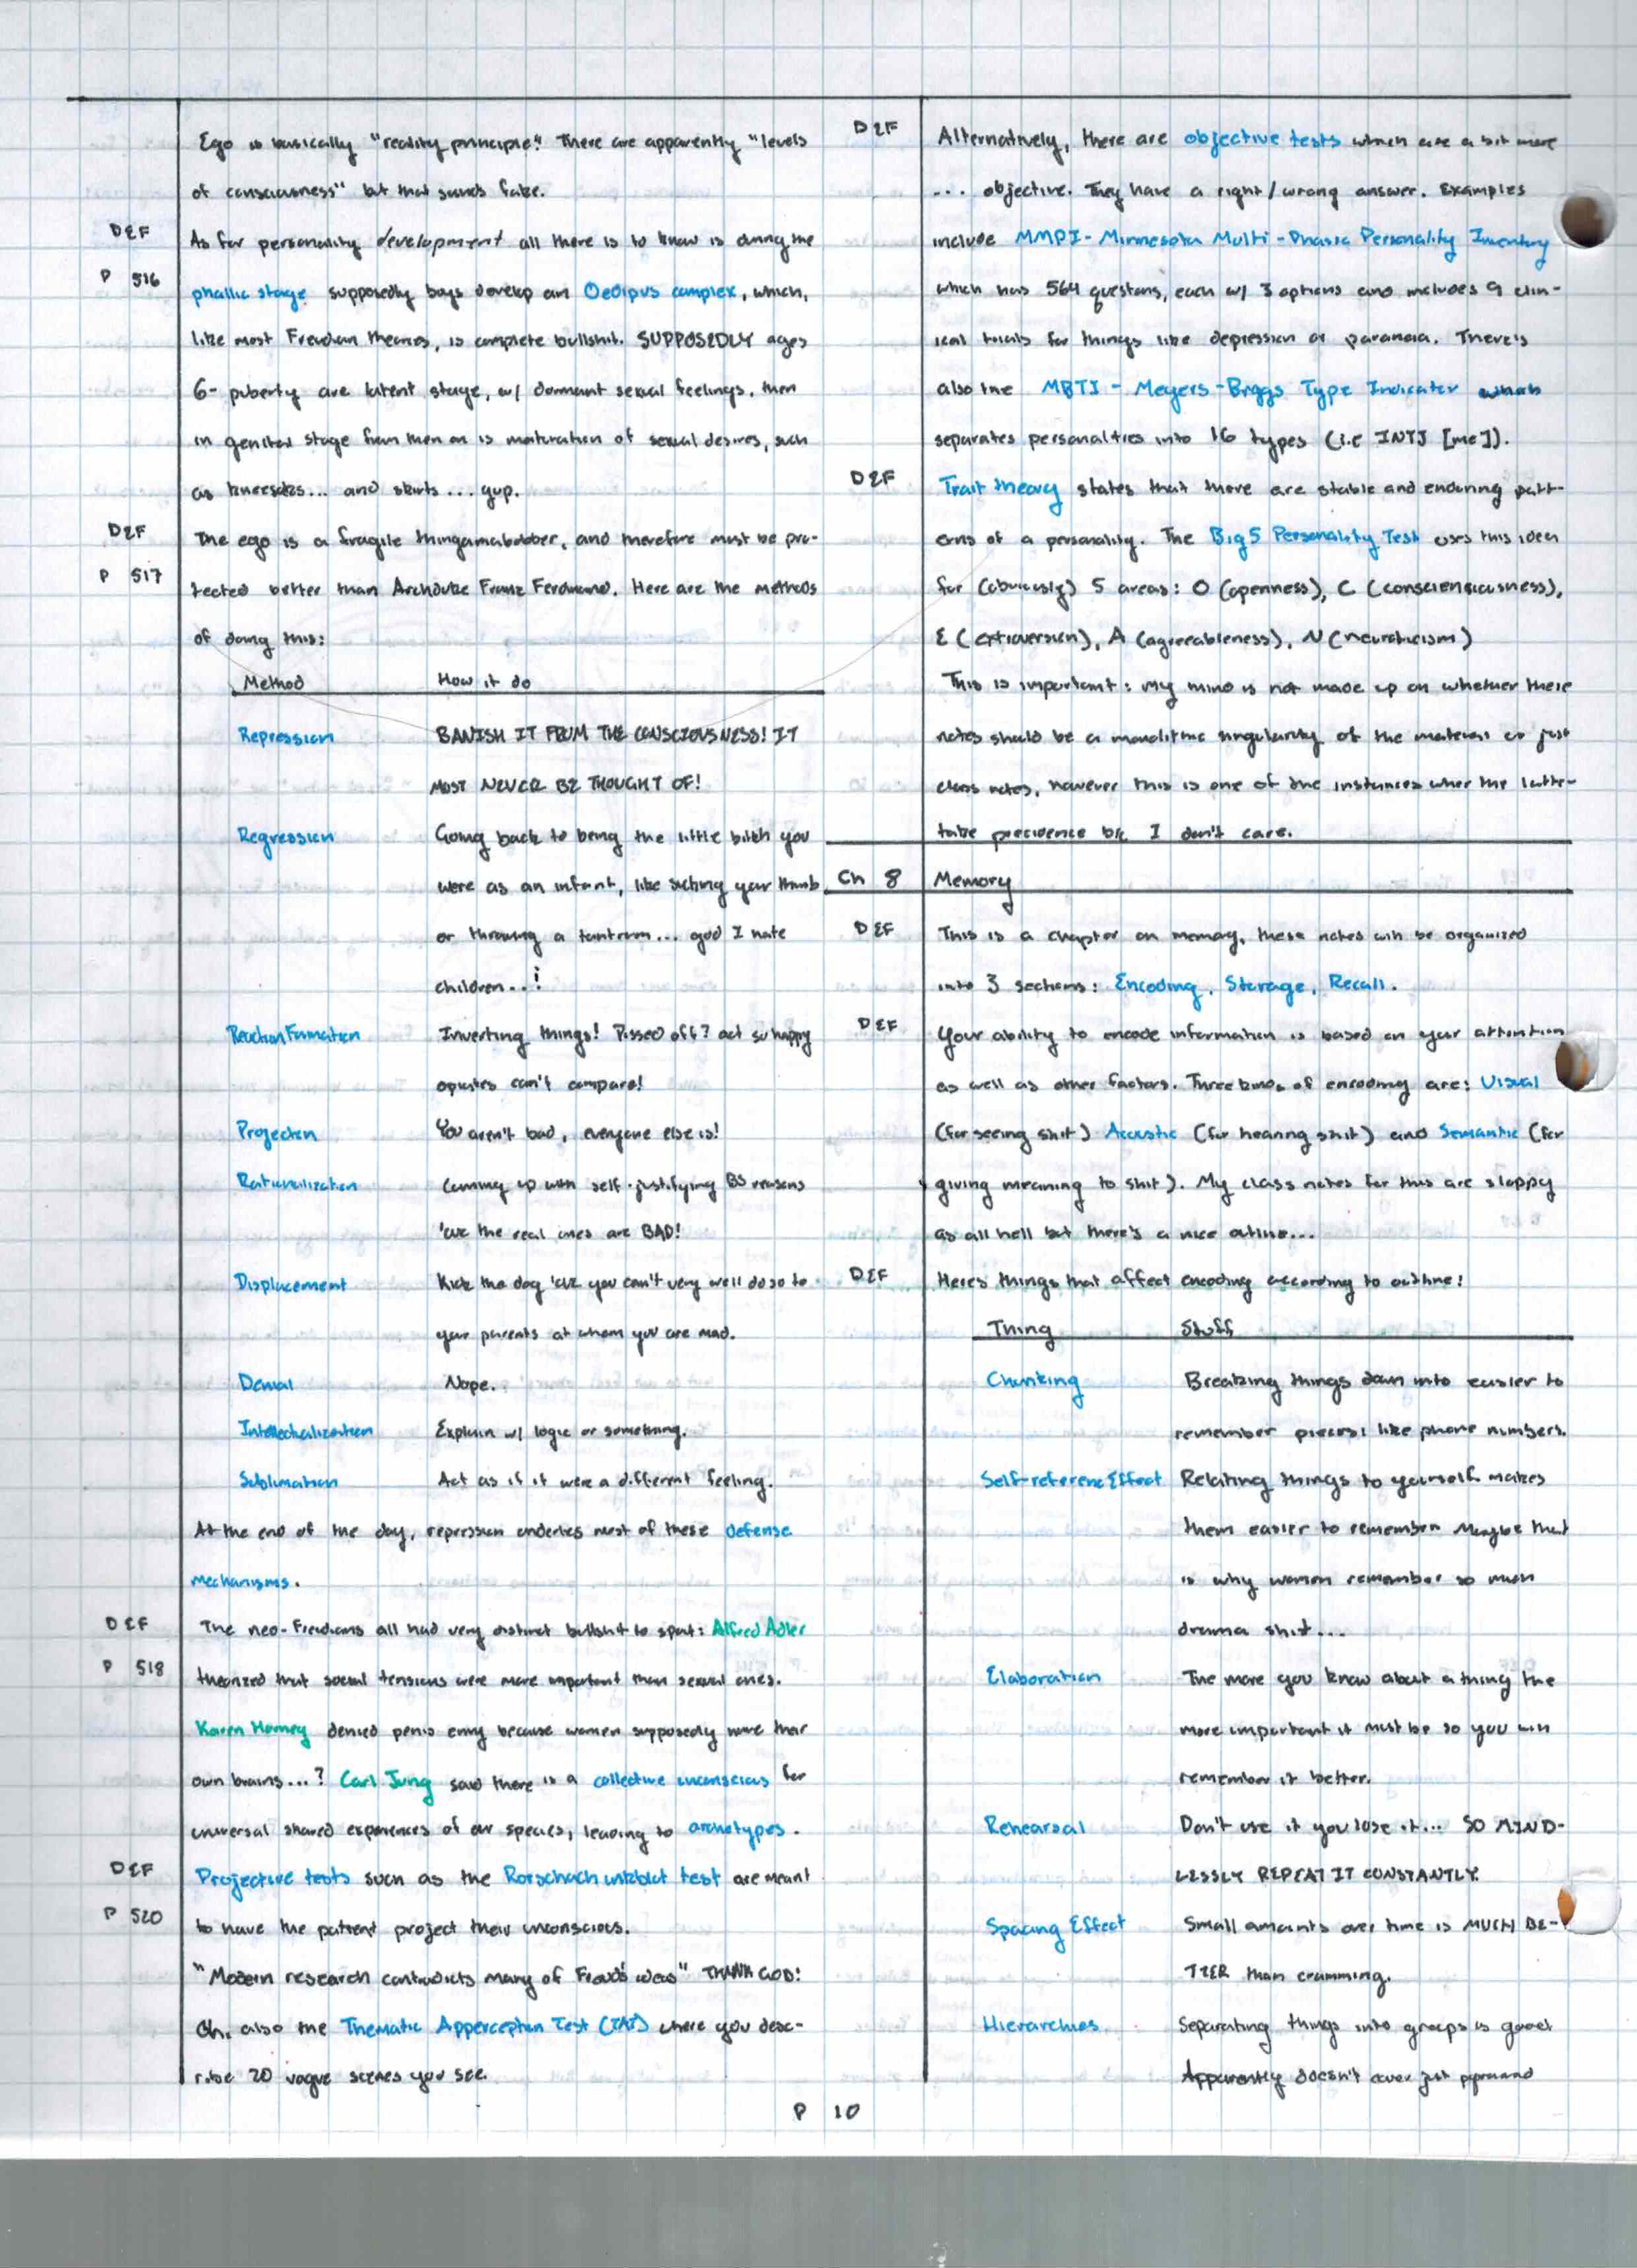 Ego is basically "reality principle." There are apparently "levels
of consciousness" but that sounds fake.
DEF
As for personality development all there is to know is during the
P 516
phallic stage supposedly boys develop an Oedipus complex, which,
like most Freudian theories, is complete bullshit. SUPPOSEDLY ages
6- puberty are latent stage, w/ dormant sexual feelings, then
in genital stage from then on is maturation of sexual desires, such
as kneesocks... and skirts... yup.
DEF
The ego is a fragile thingamabobber, and therefore must be pro-
P 517
tected better than Archduke Franz Ferdinand. Here are the methods
of doing this:
Method How it do
Repression BANISH IT FROM THE CONSCIOUSNESS! IT
MUST NEVER BE THOUGHT OF!
Regression Going back to being the little bitch you
were as an infant, like sucking your thumb
or throwing a tantrum... god I hate
children...!
Reaction Formation Inverting things! Pissed off? act so happy
opiates can't compare!
Projection You aren't bad, everyone else is!
Rationalization Coming up with self-justifying BS reasons
'cuz the real ones are BAD!
Displacement Kick the dog 'cuz you can't very well do so to
your parents at whom you are mad.
Denial Nope.
Intellectualization Explain w/ logic or something.
Sublimation Act as if it were a different feeling.
At the end of the day, repression underlies most of these defense
mechanisms.
DEF
The neo-Freudians all had very distinct bullshit to spout: Alfred Adler
P 518
theorized that social tensions were more important than sexual ones.
Karen Horney denied penis envy because women supposedly have their
own brains...? Carl Jung said there is a collective unconscious for
universal shared experiences of our species, leading to archetypes.
DEF
Projective tests such as the Rorschach inkblot test are meant
P 520
to have the patient project their unconscious.
"Modern research contradicts many of Freud's ideas" THANK GOD!
Oh, also the Thematic Apperception Test (TAT) where you desc-
ribe 20 vague scenes you see.
DEF
Alternatively, there are objective tests which are a bit more
... objective. They have a right/wrong answer. Examples
include MMPI - Minnesota Multi-Phasic Personality Inventory
which has 564 questions, each w/ 3 options and includes 9 clin-
ical for things like depression or paranoia. There's
also the MBTI - Meyers-Briggs Type Indicator which
separates personalties into 16 types (i.e INTJ [me]).
DEF
Trait theory states that there are stable and enduring patt-
erns of a personality. The Big 5 Personality Test uses this idea
for (obviously) 5 areas: O (openness), C (consciensiousness),
E (extroversion), A (agreeableness), N (neuroticism)
This is important: My mind is not made up on whether these
notes should be a monolithic singularity of the material or just
class notes, however this is one of the instances wher the latter
take precidence b/c I don't care.
Ch 8 Memory
DEF
This is a chapter on memory, these notes will be organized
into 3 sections: Encoding, Storage, Recall.
DEF
Your ability to encode information is based on your attention
as well as other factors. Three kinds of encoding are: Visual
(for seeing shit) Acoustic (for hearing shit) and Semantic (for
giving meaning to shit). My class notes for this are sloppy
as all hell but there's a nice outline...
DEF
Here's things that affect encoding according to outline:
Thing Stuff
Chunking Breaking things down into easier to
remember pieces; like phone numbers.
Self-reference Effect Relating things to yourself makes
them easier to remember Maybe that
is why women remember so much
drama shit...
Elaboration The more you know about a thing the
more important it must be so you will
remember it better.
Rehearsal Don't use it you lose it... SO MIND-
LESSLY REPEAT IT CONSTANTLY.
Spacing Effect Small amounts over time is MUCH BE-
TTER than cramming.
Hierarchies Separating things into groups is good
Apparently doesn't cover just pyramid
P 10